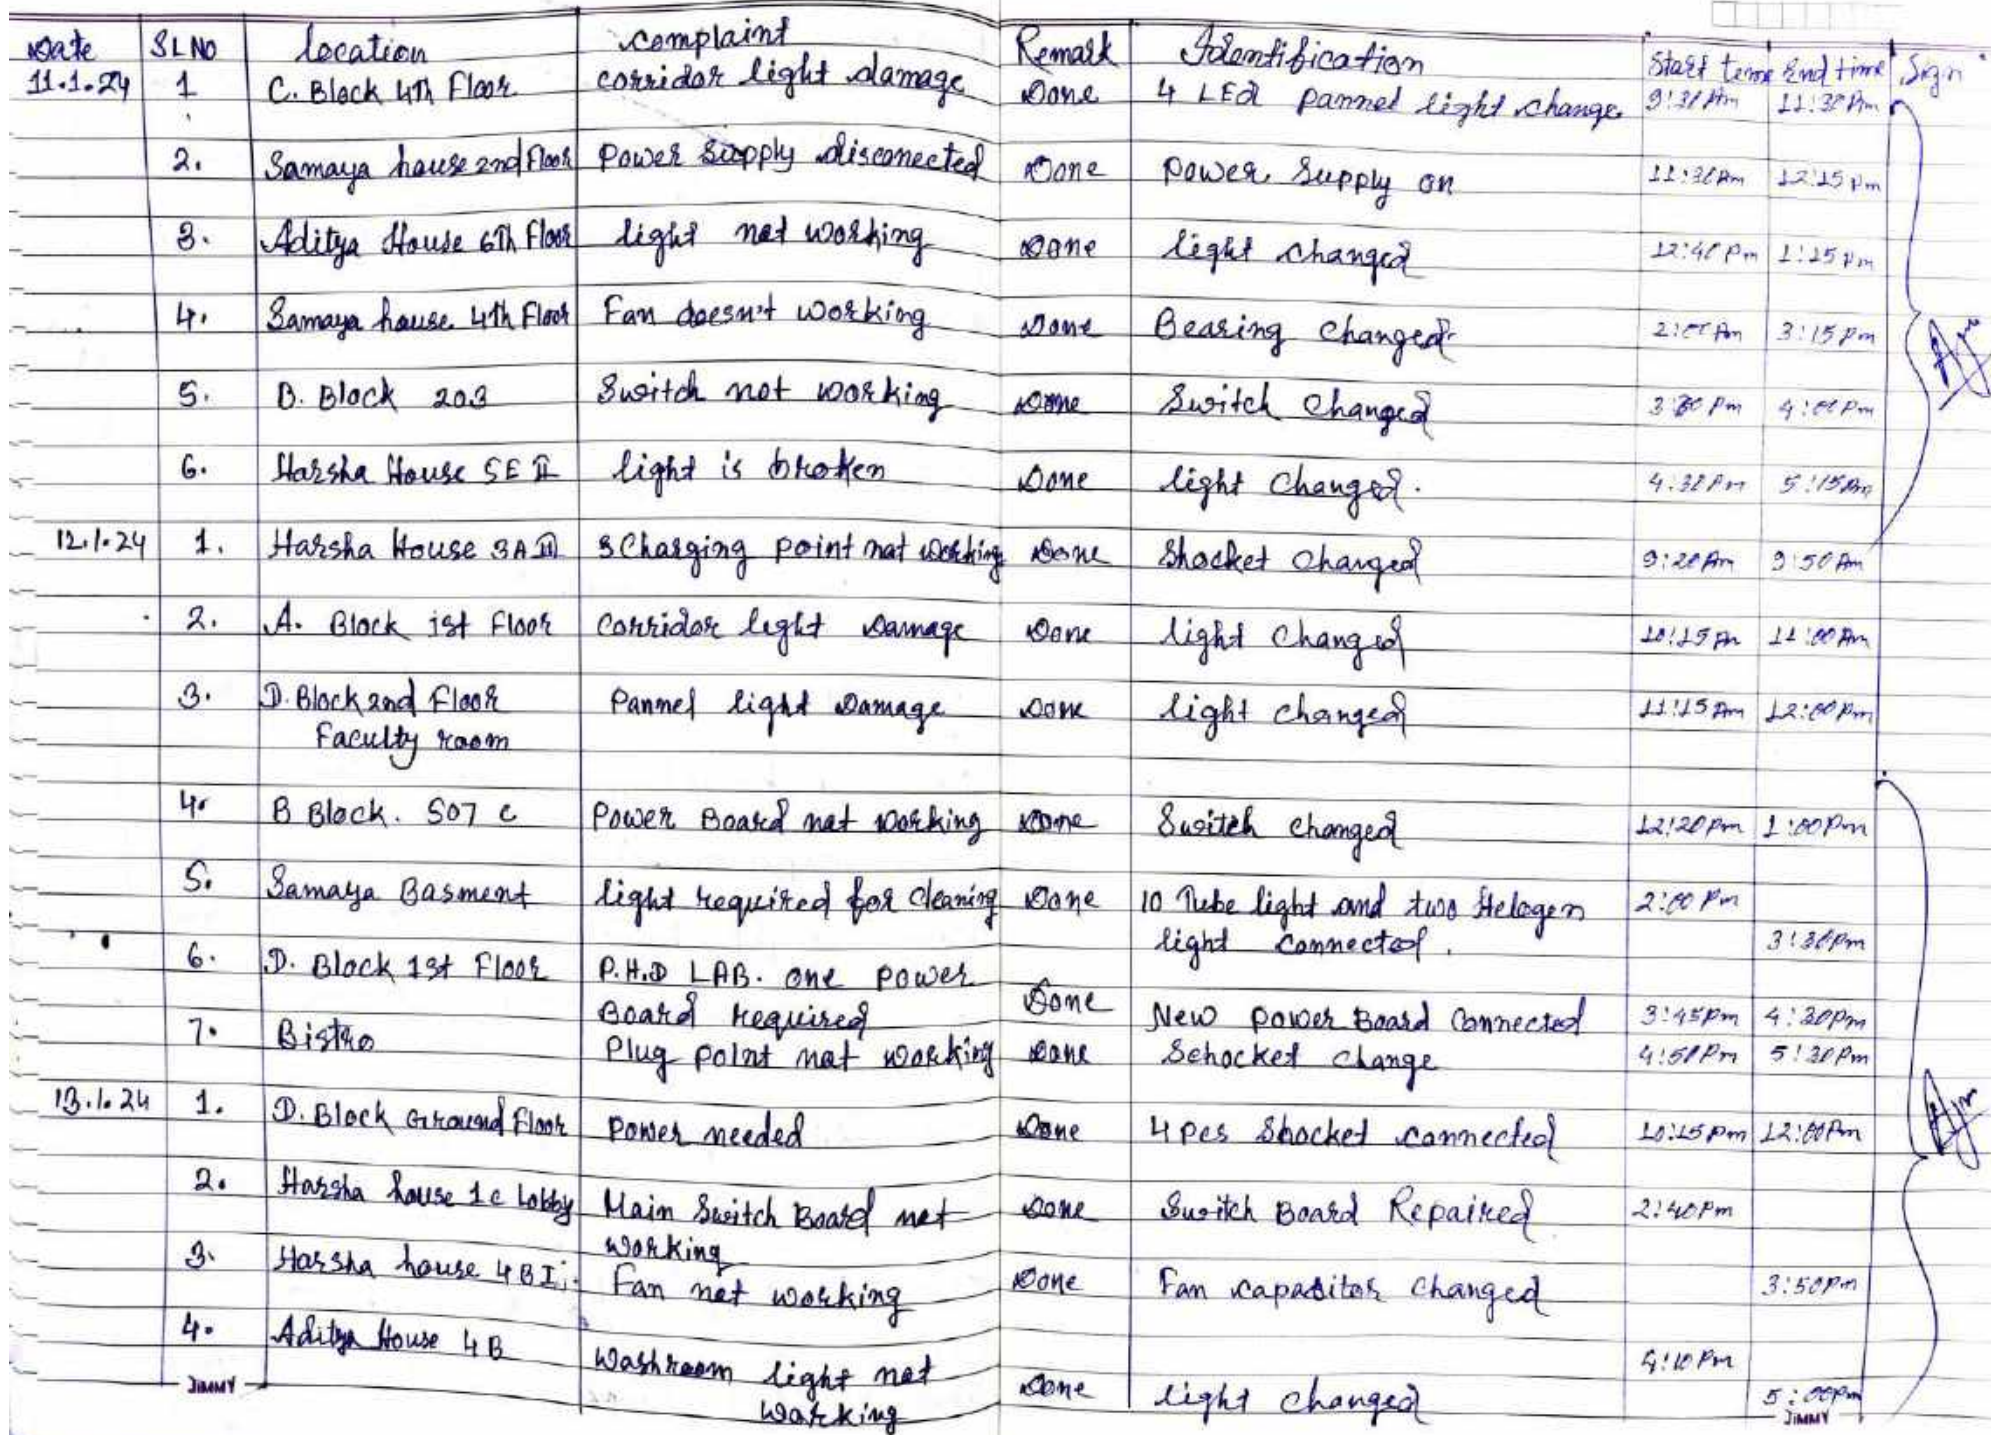 Date SL NO location complaint Remark Identification Start teme End time Sign
11.1.24 1 C. Block 4th Floor corridor light damage Done 4 LED pannel light change 9:30 Am 11:30 Am
2. Samaya house 2nd Floor Power Supply disconected Done Power Supply on 11:30 Am 12:15 Pm
3. Aditya House 6th Floor light not working Done light changed 12:40 Pm 1:15 Pm
4. Samaya house 4th Floor Fan doesn't working Done Bearing changed 3:15 Pm
5. B. Block 203 Switch not working Done Switch changed Pm 4:00 Pm
6. Harsha House 5E II light is broken Done light changed. 4:30 Pm 5:15 Pm
12.1.24 1. Harsha House 3A II 3 Charging point not working Done Shocket changed 9:20 Am 9:50 Am
2. A. Block 1st Floor corridor light Damage Done light changed 10:15 Am 11:00 Am
3. D. Block 2nd Floor Pannel light Damage Done light changed 11:15 Am 12:00 Pm
Faculty room
4. B Block. 507 C Power Board not working Done Switch changed 12:20 Pm 1:00 Pm
5. Samaya Basment light required for cleaning Done 10 Tube light and two Helogen 2:00 Pm
light connected. 3:30 Pm
6. D. Block 1st Floor P.H.D LAB. one power
Board required Done New power Board connected 3:45 Pm 4:30 Pm
7. Bistro Plug point not working Done Schocket change 4:50 Pm 5:30 Pm
13.1.24 1. D. Block Ground Floor Power needed Done 4 pcs Shocket connected 10:15 Pm 12:00 Pm
2. Harsha house 1c Lobby Main Switch Board not Done Switch Board Repaired 2:40 Pm
working
3. Harsha house 4 B I. Fan not working Done Fan capasitor changed 3:50 Pm
4. Aditya House 4 B 4:10 Pm
Washroom light not Done light changed 5:00 Pm
working
JIMMY JIMMY